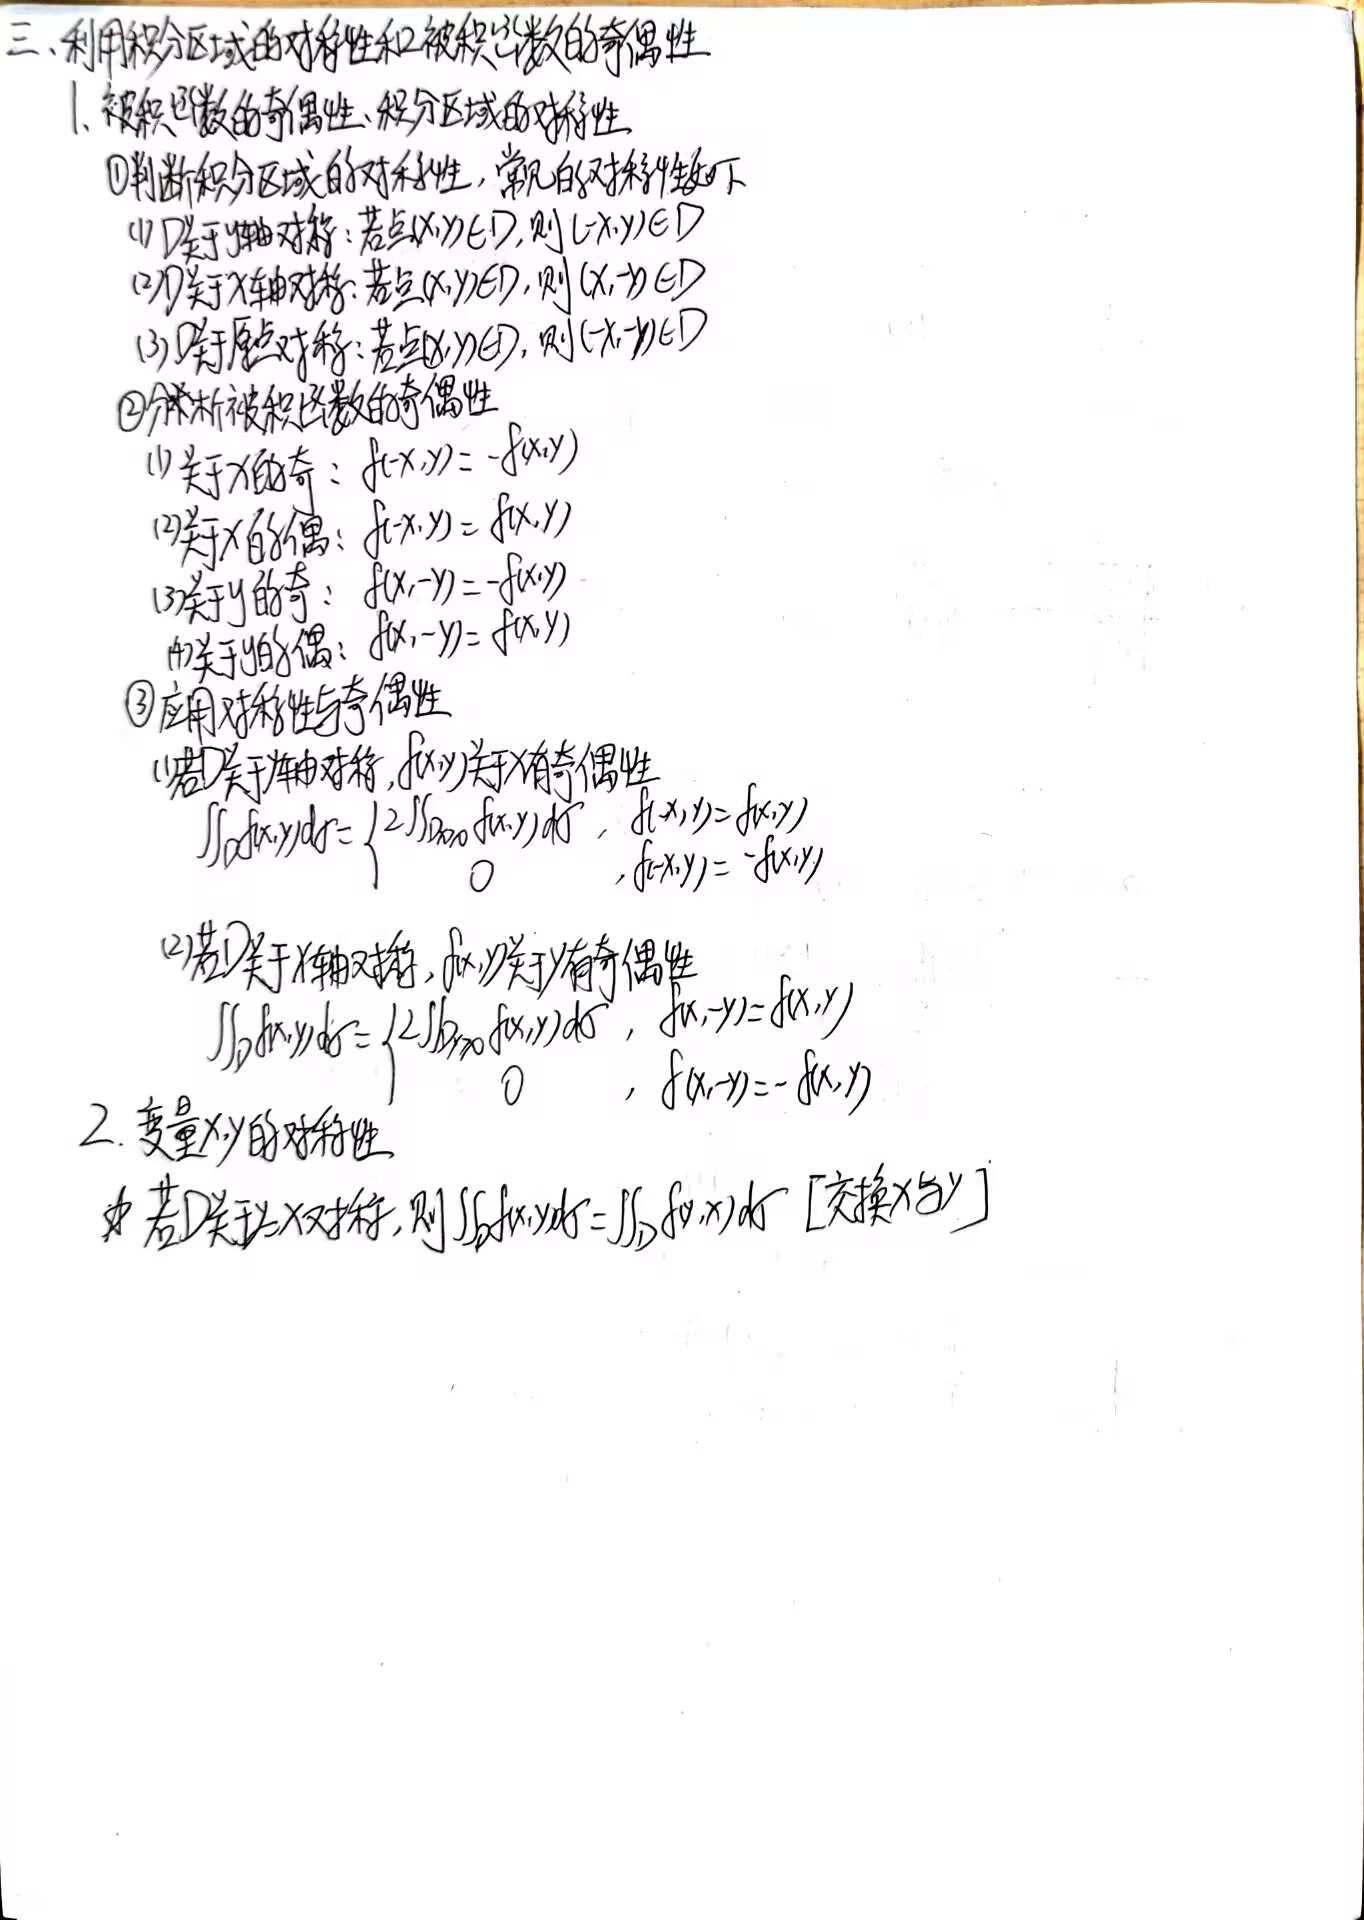 三、利用积分区域的对称性和被积函数的奇偶性
1、被积函数的奇偶性、积分区域的对称性
①判断积分区域的对称性，常见的对称性如下
(1) D关于y轴对称：若点(x,y)∈D,则(-x,y)∈D
(2) D关于x轴对称：若点(x,y)∈D,则(x,-y)∈D
(3) D关于原点对称：若点(x,y)∈D,则(-x,-y)∈D
②分析被积函数的奇偶性
(1) 关于x的奇： f(-x,y) = -f(x,y)
(2) 关于x的偶： f(-x,y) = f(x,y)
(3) 关于y的奇： f(x,-y) = -f(x,y)
(4) 关于y的偶： f(x,-y) = f(x,y)
③应用对称性与奇偶性
(1) 若D关于y轴对称,f(x,y)关于x有奇偶性
∬_D f(x,y)dσ = { 2∬_{D_{x≥0}} f(x,y)dσ , f(-x,y) = f(x,y)
0 , f(-x,y) = -f(x,y)
(2) 若D关于x轴对称,f(x,y)关于y有奇偶性
∬_D f(x,y)dσ = { 2∬_{D_{y≥0}} f(x,y)dσ , f(x,-y) = f(x,y)
0 , f(x,-y) = -f(x,y)
2. 变量x,y的对称性
若D关于y=x对称,则∬_D f(x,y)dσ = ∬_D f(y,x)dσ [交换x与y]